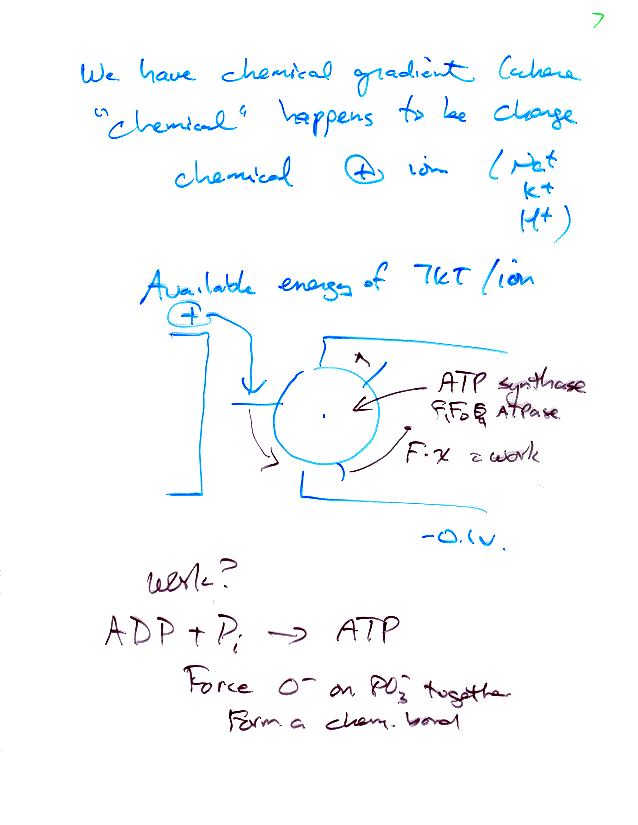 7
We have chemical gradient (where
"chemical" happens to be charge
chemical + ion (Na+
K+
H+)
Available energy of 7kT/ion
+
ATP synthase
F1F0 ATPase
F·x = work
-0.1v.
work?
ADP + Pi → ATP
Force O- on PO3- together
Form a chem. bond